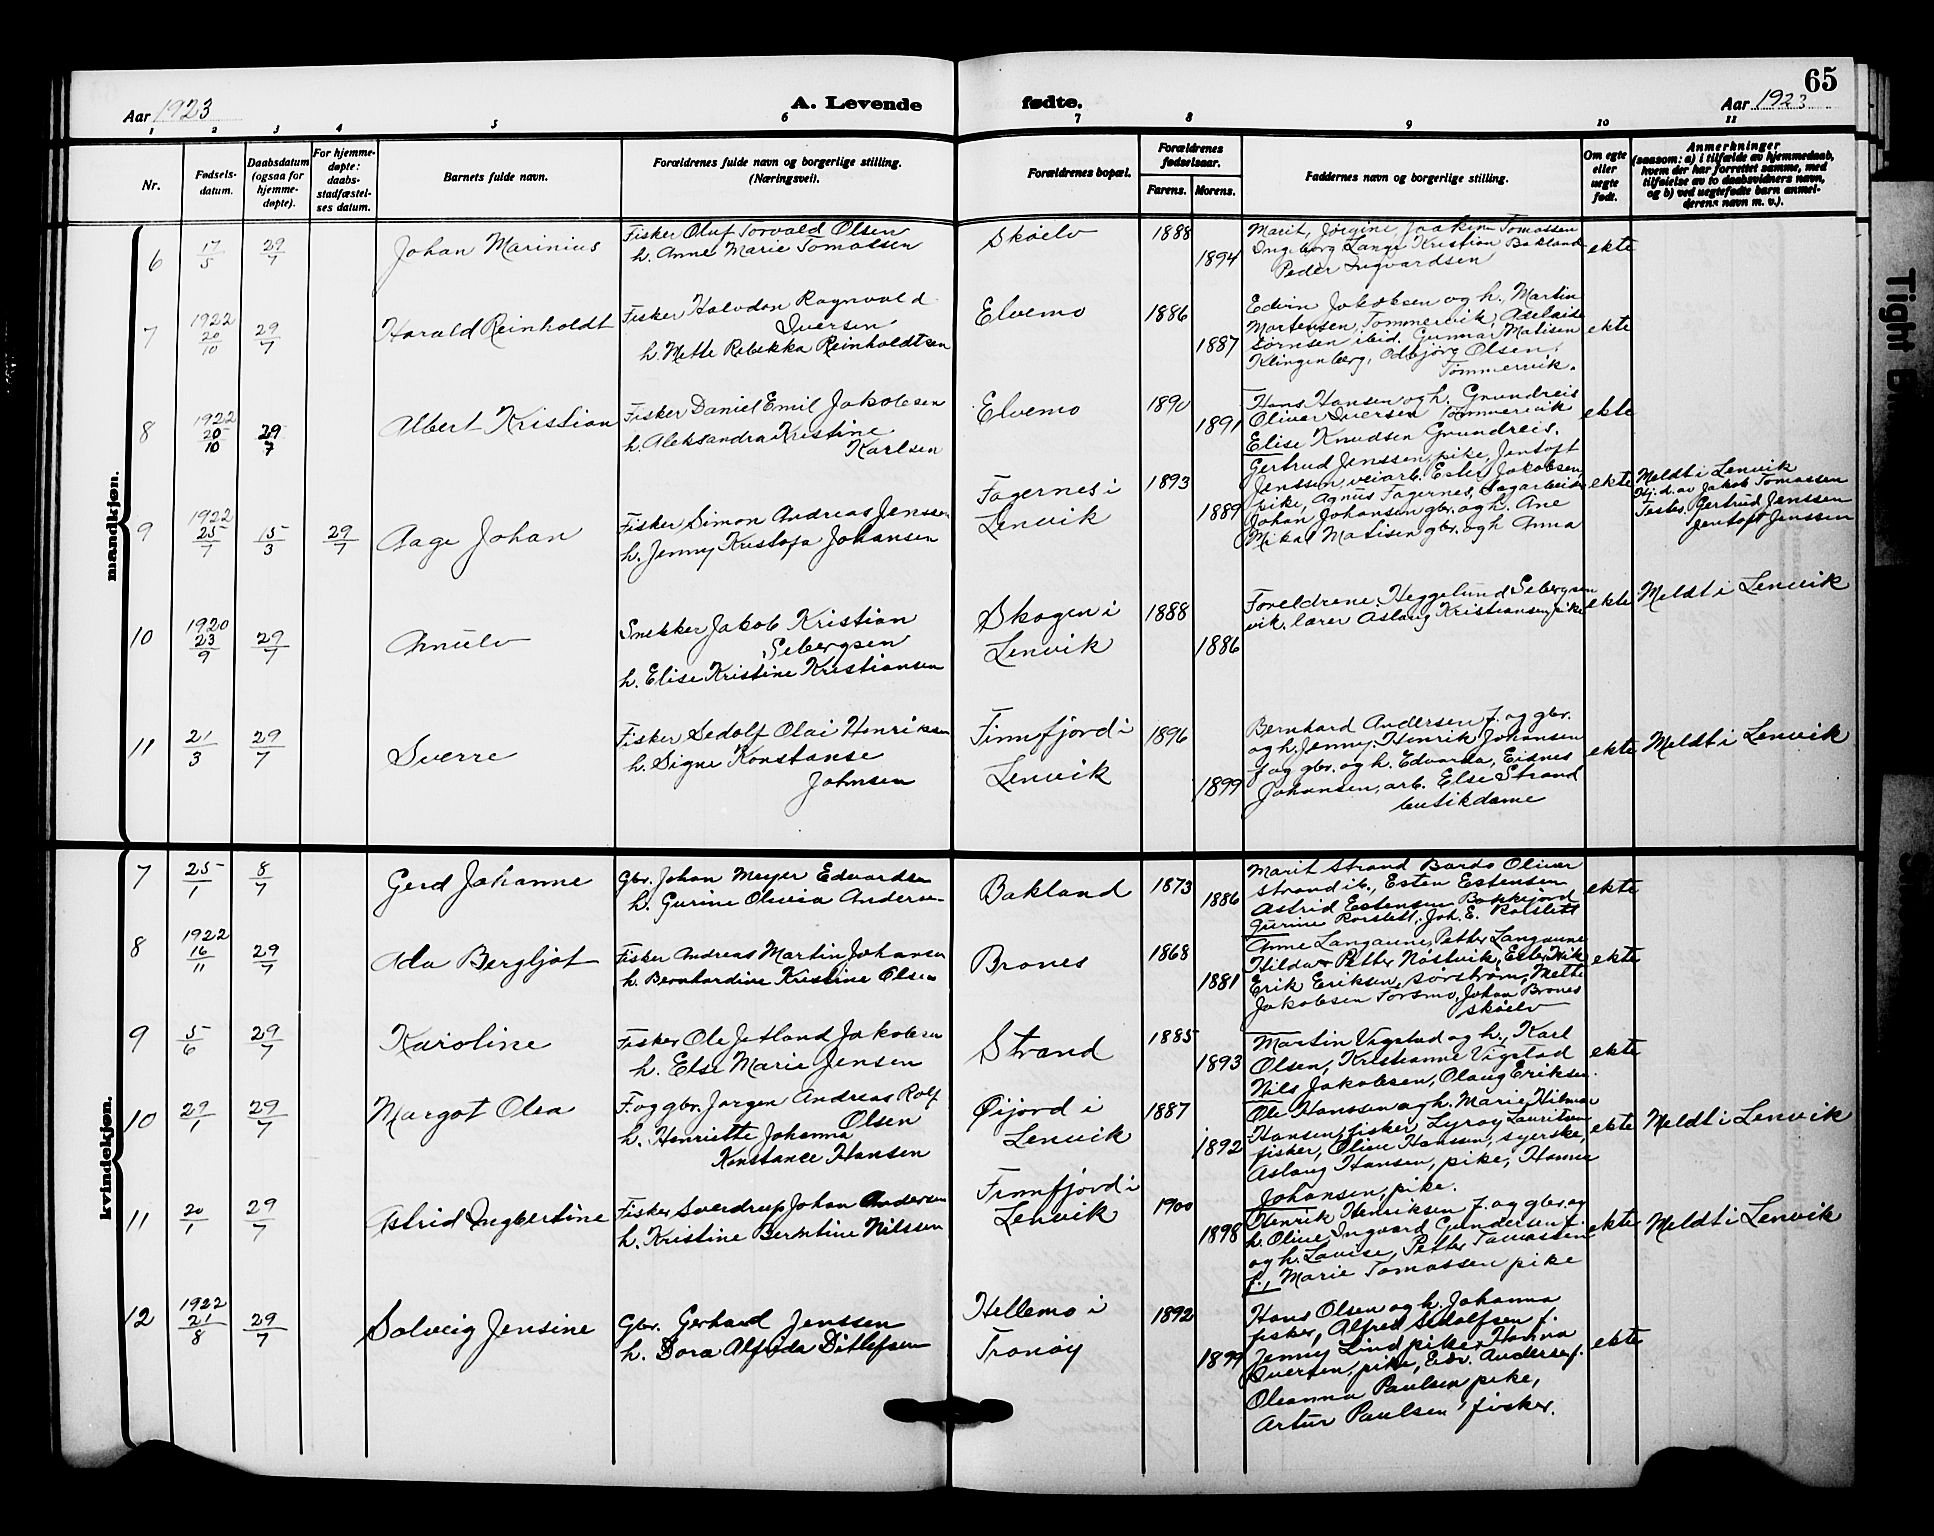 65
Aar 1923
A. Levende fødte.
Aar 1923
1 2 3 4 5 6 7 8 9 10 11
Nr.
Fødsels-
datum.
Daabsdatum
(ogsaa for
hjemme-
døpte).
For hjemme-
døpte:
daabs-
stadfæstel-
ses datum.
Barnets fulde navn.
Forældrenes fulde navn og borgerlige stilling.
(Næringsvei).
Forældrenes bopæl.
Forældrenes
fødselsaar.
Farens. Morens.
Faddernes navn og borgerlige stilling.
Om egte
eller
uegte
født.
Anmerkninger
(saasom: a) i tilfælde av hjemmedaab,
hvem der har forrettet samme, med
tilføielse av to daabsvidners navn,
og b) ved uegtefødte barn anmel-
derens navn m. v.).
mandkjøn.
6
17/5
29/7
Johan Marinius
Fisker Oluf Torvald Olsen
h. Anne Marie Tomassen
Skøelv
1888
1894
Marit, Jørgine, Joakim Tomassen
Ingeborg Lange Kristian Bakland
Peder Ingvardsen
ekte
7
1922
20/10
29/7
Harald Reinholdt
Fisker Halvdan Ragnvald
Iversen
h. Mette Rebekka Reinholdtsen
Elvemo
1886
1887
Edvin Jakobsen og h. Martin
Mortensen, Tømmervik, Adelaide
Sørnsen ibid. Gunnar Matisen
Klingenberg, Odbjørg Olsen
Tømmervik.
ekte
8
1922
20/10
29/7
Albert Kristian
Fisker Daniel Emil Jakobsen
h. Aleksandra Kristine
Karlsen
Elvemo
1890
1891
Hans Hansen og h. Grundreis
Oliver Iversen Tømmervik
Elise Knudsen Grundreis.
ekte
9
1922
25/7
15/3
29/7
Aage Johan
Fisker Simon Andreas Jenssen
h. Jenny Kristofa Johansen
Fagernes i
Lenvik
1893
1889
Gertrud Jenssen, pike, Jentoft
Jenssen, veiarb. Ester Jakobsen
pike, Agnus Fagernes, Sagarbeider
Johan Johansen gbr. og h. Ane
Mikal Matisen gbr. og h Anna
ekte
Meldt i Lenvik
Hj. d. av Jakob Tomassen
Testes Gertrud Jenssen
Jentoft Jenssen
10
1920
23/9
29/7
Arnulv
Snekker Jakob Kristian
Sebergsen
h. Elise Kristine Kristiansen
Skogen i
Lenvik
1888
1886
Foreldrene, Heggelund Sebergsen
vik. lærer Aslaug Kristiansen, pike
ekte
Meldt i Lenvik
11
21/3
29/7
Sverre
Fisker Sedolf Olai Henriksen
h. Signe Konstanse
Johnsen
Finnfjord i
Lenvik
1896
1899
Bernhard Andersen f. og gbr.
og h. Jenny. Henrik Johansen
f og gbr. og h. Edvarda, Eidnes
Johansen, arb. Else Strand
butikdame
ekte
Meldt i Lenvik
kvindekjøn.
7
25/1
8/7
Gerd Johanne
Gbr. Johan Meyer Edvardsen
h. Gurine Olivia Andersen
Bakland
1873
1886
Marit Strand Bardo Oliver
Strand ib., Esten Estensen
Astrid Estensen Bokkejord
Gurine Rorslett, Joh. E. Rolslett
ekte
8
1922
16/11
29/7
Ada Bergljot
Fisker Andreas Martin Johansen
h. Bernhardine Kristine Olsen
Brones
1868
1881
Anne Langaune, Petter Langaune
Hilda Petter Nöstvik, Ester Vik
Erik Eriksen, Sørstrøm, Mette
Jakobsen Torsmo, Johan Brones
Skøelv
ekte
9
5/6
29/7
Karoline
Fisker Ole Jetland Jakobsen
h. Else Marie Jensen
Strand
1885
1893
Martin Vigstad og h., Karl
Olsen, Kristianne Vigstad
Nils Jakobsen, Olaug Eriksen.
ekte
10
29/1
29/7
Margot Olea
F. og gbr. Jørgen Andreas Rolf
Olsen
h. Henriette Johanna
Konstance Hansen
Øijord i
Lenvik
1887
1892
Ole Hanssen og h. Marie, Hilmar
Hansen, fisker Lyray Lauritsen
fisker, Oline Hansen, syerske,
Aslaug Hansen, pike, Hanna
Johansen, pike.
ekte
Meldt i Lenvik
11
20/1
29/7
Astrid Ingbertine
Fisker Sverdrup Johan Andersen
h. Kristine Berntine Nilssen
Finnfjord i
Lenvik
1900
1898
Henrik Henriksen f. og gbr. og
h. Oline Ingvard Gundersen f.
og h. Lovise, Petter Tomassen
f., Marie Tomassen pike
ekte
Meldt i Lenvik
12
1922
21/8
29/7
Solveig Jensine
Gbr. Gerhard Jenssen
h. Dora Alfrida Ditlefsen
Hellemo i
Tranøy
1892
1899
Hans Olsen og h. Johanna
fisker, Alfred Sedolfsen f.
Jenny Lind pike Hanna
Iversen, pike, Edv. Andersen f.
Oleanna Paulsen pike,
Artur Paulsen fisker.
ekte
Tight B